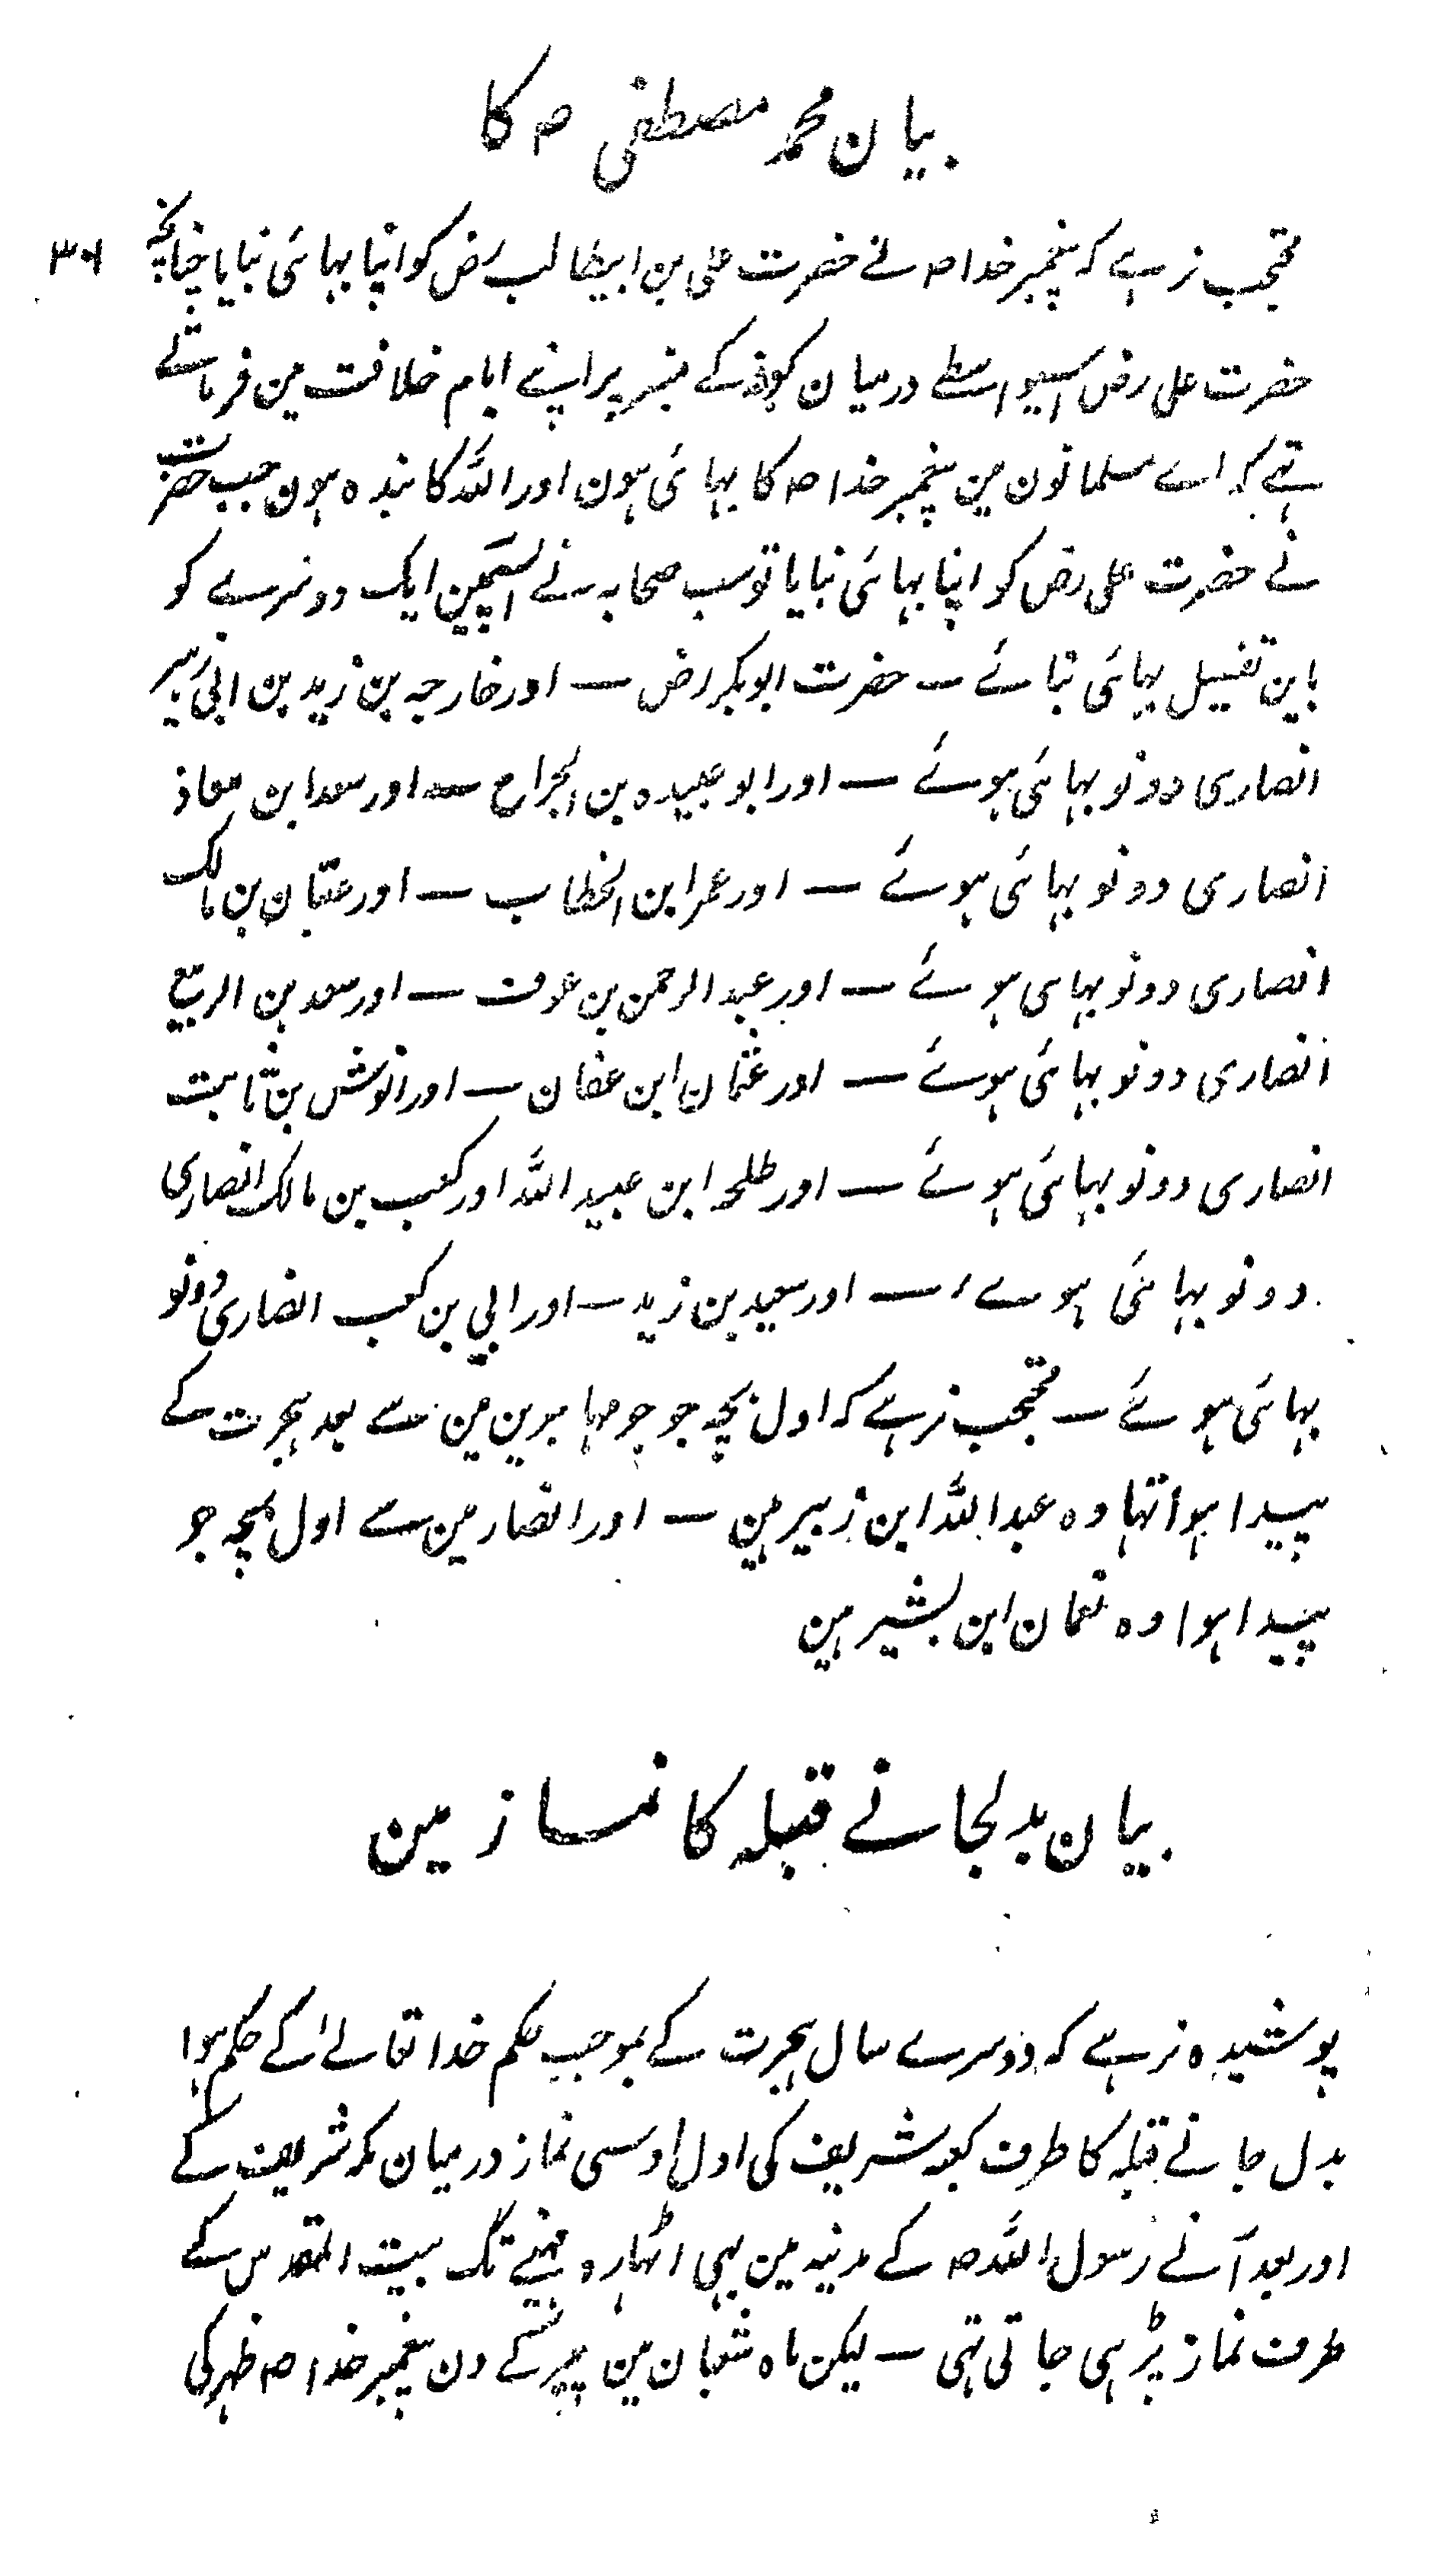 بیان محمد مصطفی ص کا
۳۰۱
محتجب نرہے کہ پیغمبر خدا ص نے حضرت علی بن ابیطالب رض کو اپنا بہائی بنایا چنانچہ
حضرت علی رض اسیواسطے درمیان کوفہ کے منبر پر اپنے ایام خلافت مین فرماتے
تہے کہ اے مسلمانون مین پیغمبر خدا ص کا بہائی ہون اور اللہ کا بندہ ہون جب حضرت
نے حضرت علی رض کو اپنا بہائی بنایا تو سب صحابہ نے آپسمین ایک دوسرے کو
باین تفصیل بہائی بنائے — حضرت ابوبکر رض — اور خارجہ بن زید بن ابی زہیر
انصاری دونو بہائی ہوئے — اور ابو عبیدہ بن الجراح — اور سعد ابن معاذ
انصاری دونو بہائی ہوئے — اور عمر ابن الخطاب — اور عتبان بن مالک
انصاری دونو بہائی ہوئے — اور عبد الرحمن بن عوف — اور سعد بن الربیع
انصاری دونو بہائی ہوئے — اور عثمان ابن عفان — اور اوس بن ثابت
انصاری دونو بہائی ہوئے — اور طلحہ ابن عبید اللہ اور کعب بن مالک انصاری
دونو بہائی ہوے — اور سعید بن زید — اور ابی بن کعب انصاری دونو
بہائی ہوئے — محتجب نرہے کہ اول بچہ جو جو مہاجرین مین سے بعد ہجرت کے
پیدا ہوا تہا وہ عبد اللہ ابن زبیر ہین — اور انصار مین سے اول بچہ جو
پیدا ہوا وہ نعمان ابن بشیر ہین
بیان بدلجانے قبلہ کا نماز مین
پوشیدہ نرہے کہ دوسرے سال ہجرت کے بموجب حکم خدا تعالےٰ کے حکم ہوا
بدل جانے قبلہ کا طرف کعبہ شریف کی اول اوسی نماز درمیان مکہ شریف کے
اور بعد آنے رسول اللہ ص کے مدینہ مین بہی اٹہارہ مہینے تک بیت المقدس کے
طرف نماز پڑہی جاتی تہی — لیکن ماہ شعبان مین پیر کے دن پیغمبر خدا ص ظہر کی